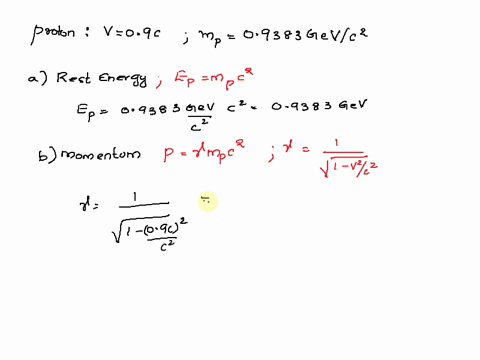 proton : V=0.9c ; mp = 0.9383 GeV/c²
a) Rest Energy ; Ep = mpc²
Ep = 0.9383 GeV/c² c² = 0.9383 GeV
b) momentom P = γmpc² ; γ = 1/√(1-V²/c²)
γ = 1/√(1-(0.9c)²/c²) =